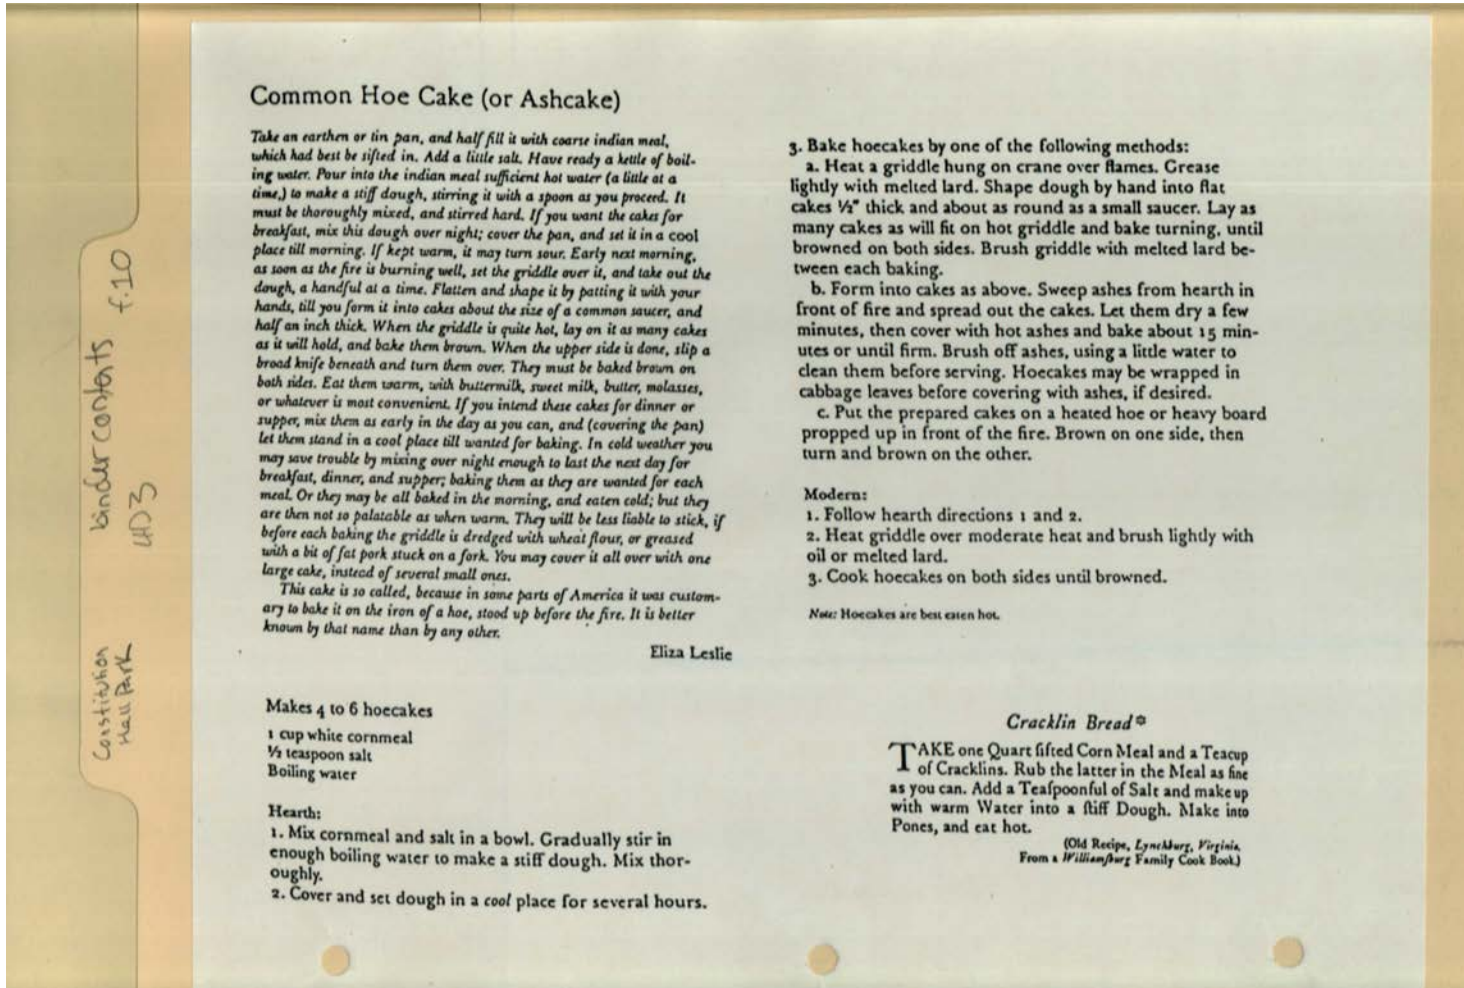 Common Hoe Cake (or Ashcake)
Take an earthen or tin pan, and half fill it with coarse indian meal,
which had best be sifted in. Add a little salt. Have ready a kettle of boil-
ing water. Pour into the indian meal sufficient hot water (a little at a
time,) to make a stiff dough, stirring it with a spoon as you proceed. It
must be thoroughly mixed, and stirred hard. If you want the cakes for
breakfast, mix this dough over night; cover the pan, and set it in a cool
place till morning. If kept warm, it may turn sour. Early next morning,
as soon as the fire is burning well, set the griddle over it, and take out the
dough, a handful at a time. Flatten and shape it by patting it with your
hands, till you form it into cakes about the size of a common saucer, and
half an inch thick. When the griddle is quite hot, lay on it as many cakes
as it will hold, and bake them brown. When the upper side is done, slip a
broad knife beneath and turn them over. They must be baked brown on
both sides. Eat them warm, with buttermilk, sweet milk, butter, molasses,
or whatever is most convenient. If you intend these cakes for dinner or
supper, mix them as early in the day as you can, and (covering the pan)
let them stand in a cool place till wanted for baking. In cold weather you
may save trouble by mixing over night enough to last the next day for
breakfast, dinner, and supper; baking them as they are wanted for each
meal. Or they may be all baked in the morning, and eaten cold; but they
are then not so palatable as when warm. They will be less liable to stick, if
before each baking the griddle is dredged with wheat flour, or greased
with a bit of fat pork stuck on a fork. You may cover it all over with one
large cake, instead of several small ones.
This cake is so called, because in some parts of America it was custom-
ary to bake it on the iron of a hoe, stood up before the fire. It is better
known by that name than by any other.
Eliza Leslie
Makes 4 to 6 hoecakes
1 cup white cornmeal
½ teaspoon salt
Boiling water
Hearth:
1. Mix cornmeal and salt in a bowl. Gradually stir in
enough boiling water to make a stiff dough. Mix thor-
oughly.
2. Cover and set dough in a cool place for several hours.
3. Bake hoecakes by one of the following methods:
a. Heat a griddle hung on crane over flames. Grease
lightly with melted lard. Shape dough by hand into flat
cakes ½" thick and about as round as a small saucer. Lay as
many cakes as will fit on hot griddle and bake turning, until
browned on both sides. Brush griddle with melted lard be-
tween each baking.
b. Form into cakes as above. Sweep ashes from hearth in
front of fire and spread out the cakes. Let them dry a few
minutes, then cover with hot ashes and bake about 15 min-
utes or until firm. Brush off ashes, using a little water to
clean them before serving. Hoecakes may be wrapped in
cabbage leaves before covering with ashes, if desired.
c. Put the prepared cakes on a heated hoe or heavy board
propped up in front of the fire. Brown on one side, then
turn and brown on the other.
Modern:
1. Follow hearth directions 1 and 2.
2. Heat griddle over moderate heat and brush lightly with
oil or melted lard.
3. Cook hoecakes on both sides until browned.
Note: Hoecakes are best eaten hot.
Cracklin Bread*
TAKE one Quart ſifted Corn Meal and a Teacup
of Cracklins. Rub the latter in the Meal as fine
as you can. Add a Teaſpoonful of Salt and make up
with warm Water into a ſtiff Dough. Make into
Pones, and eat hot.
(Old Recipe, Lynchburg, Virginia,
From a Williamſburg Family Cook Book)
Constitution
Hall Park
binder contents f.10
4D3